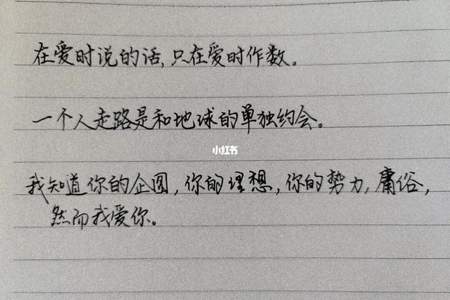 在爱时说的话,只在爱时作数。
一个人走路是和地球的单独约会。
小红书
我知道你的企图,你的理想,你的势力,庸俗,
然而我爱你。